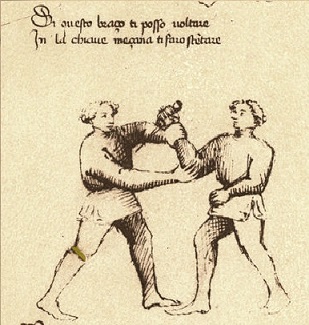 Di questo braço ti posso voltare
In la chiave meçana ti faro stētare